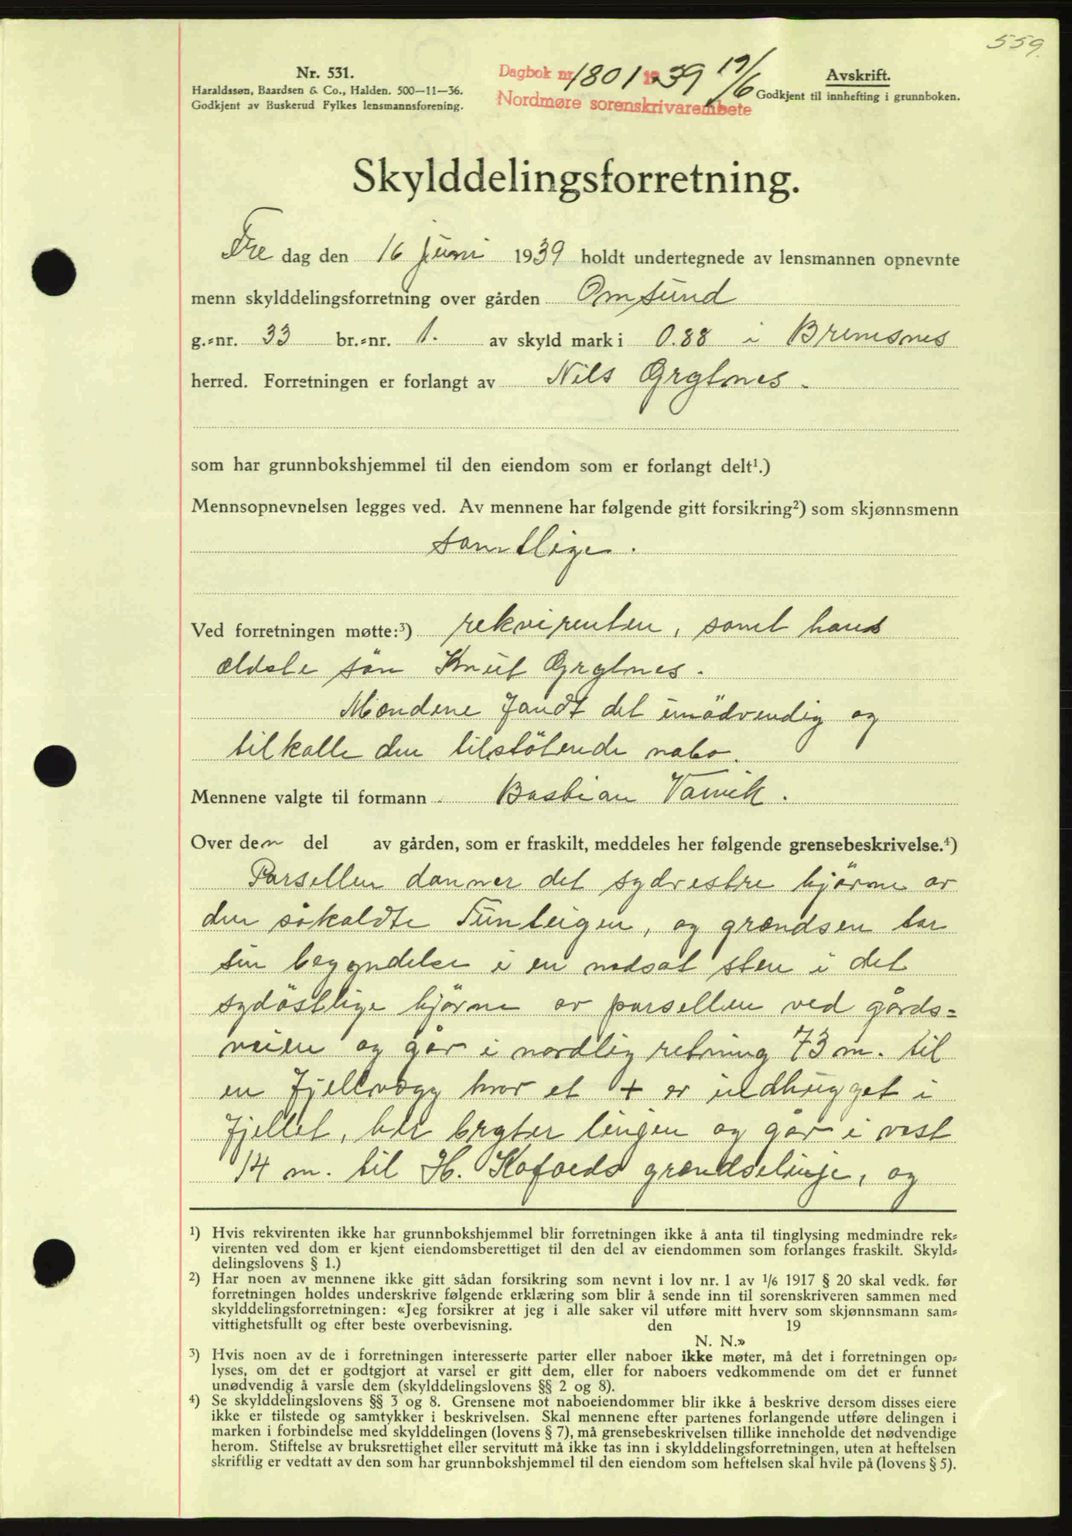 559.
Nr. 531.
Haraldssøn, Baardsen & Co., Halden. 500—11—36.
Godkjent av Buskerud Fylkes lensmannsforening.
Dagbok nr. 1801 1939 19/6
Nordmøre sorenskrivarembete
Avskrift.
Godkjent til innhefting i grunnboken.
Skylddelingsforretning.
Fre dag den 16 juni 1939 holdt undertegnede av lensmannen opnevnte
menn skylddelingsforretning over gården Omsund
g.-nr. 33 br.-nr. 1. av skyld mark i 0.88 i Bremsnes
herred. Forretningen er forlangt av Nils Grytnes.
som har grunnbokshjemmel til den eiendom som er forlangt delt¹.)
Mennsopnevnelsen legges ved. Av mennene har følgende gitt forsikring²) som skjønnsmenn
samtlige.
Ved forretningen møtte:³) rekvirenten, samt hans
ældste søn Knut Grytnes.
Mændene fandt det unödvendig og
tilkalle den tilstötende nabo.
Mennene valgte til formann Bastian Vamik.
Over den del av gården, som er fraskilt, meddeles her følgende grensebeskrivelse.⁴)
Parsellen danner det sydvestre hjörne av
den såkaldte Tunteigen, og grændsen tar
sin begyndelse i en nedsat sten i det
sydöstlige hjörne av parsellen ved gårds-
veien og går i nordlig retning 73 m. til
en fjellvegg hvor et + er indhugget i
fjellet, her bryter linjen og går i vest
14 m. til H. Kofoeds grændselinje, og
¹) Hvis rekvirenten ikke har grunnbokshjemmel blir forretningen ikke å anta til tinglysing medmindre rek-
virenten ved dom er kjent eiendomsberettiget til den del av eiendommen som forlanges fraskilt. Skyld-
delingslovens § 1.)
²) Har noen av mennene ikke gitt sådan forsikring som nevnt i lov nr. 1 av 1/6 1917 § 20 skal vedk. før
forretningen holdes underskrive følgende erklæring som blir å sende inn til sorenskriveren sammen med
skylddelingsforretningen: «Jeg forsikrer at jeg i alle saker vil utføre mitt hverv som skjønnsmann sam-
vittighetsfullt og efter beste overbevisning. den 19
N. N.»
³) Hvis noen av de i forretningen interesserte parter eller naboer ikke møter, må det i forretningen op-
lyses, om det er godtgjort at varsel er gitt dem, eller for naboers vedkommende om det er funnet
unødvendig å varsle dem (skylddelingslovens §§ 2 og 8).
⁴) Se skylddelingslovens §§ 3 og 8. Grensene mot naboeiendommer blir ikke å beskrive dersom disses eiere
ikke er tilstede og samtykker i beskrivelsen. Skal mennene efter partenes forlangende utføre delingen i
marken i forbindelse med skylddelingen (lovens § 7), må grensebeskrivelsen tillike inneholde det nødvendige
herom. Stiftelse av bruksrettighet eller servitutt må ikke tas inn i skylddelingsforretningen, uten at heftelsen
skriftlig er vedtatt av den som har grunnbokshjemmel til den eiendom som heftelsen skal hvile på (lovens § 5).